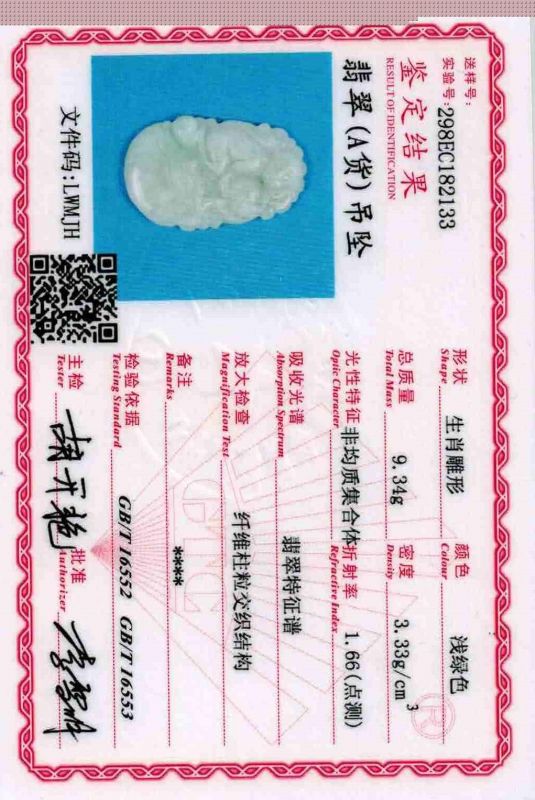 送样号:
实验号:298EC182133
鉴定结果
RESULT OF IDENTIFICATION
翡翠(A货)吊坠
文件码:LWMJH
形状 生肖雕形 颜色 浅绿色
Shape Colour
总质量 9.34g 密度 3.33g/cm³
Total Mass Density
光性特征 非均质集合体 折射率 1.66(点测)
Optic Character Refractive Index
吸收光谱 翡翠特征谱
Absorption Spectrum
放大检查 纤维柱粒交织结构
Magnification Test
备注 ****
Remarks
检验依据 GB/T 16552 GB/T 16553
Testing Standard
主检 批准
Tester Authorizer
GTC
®